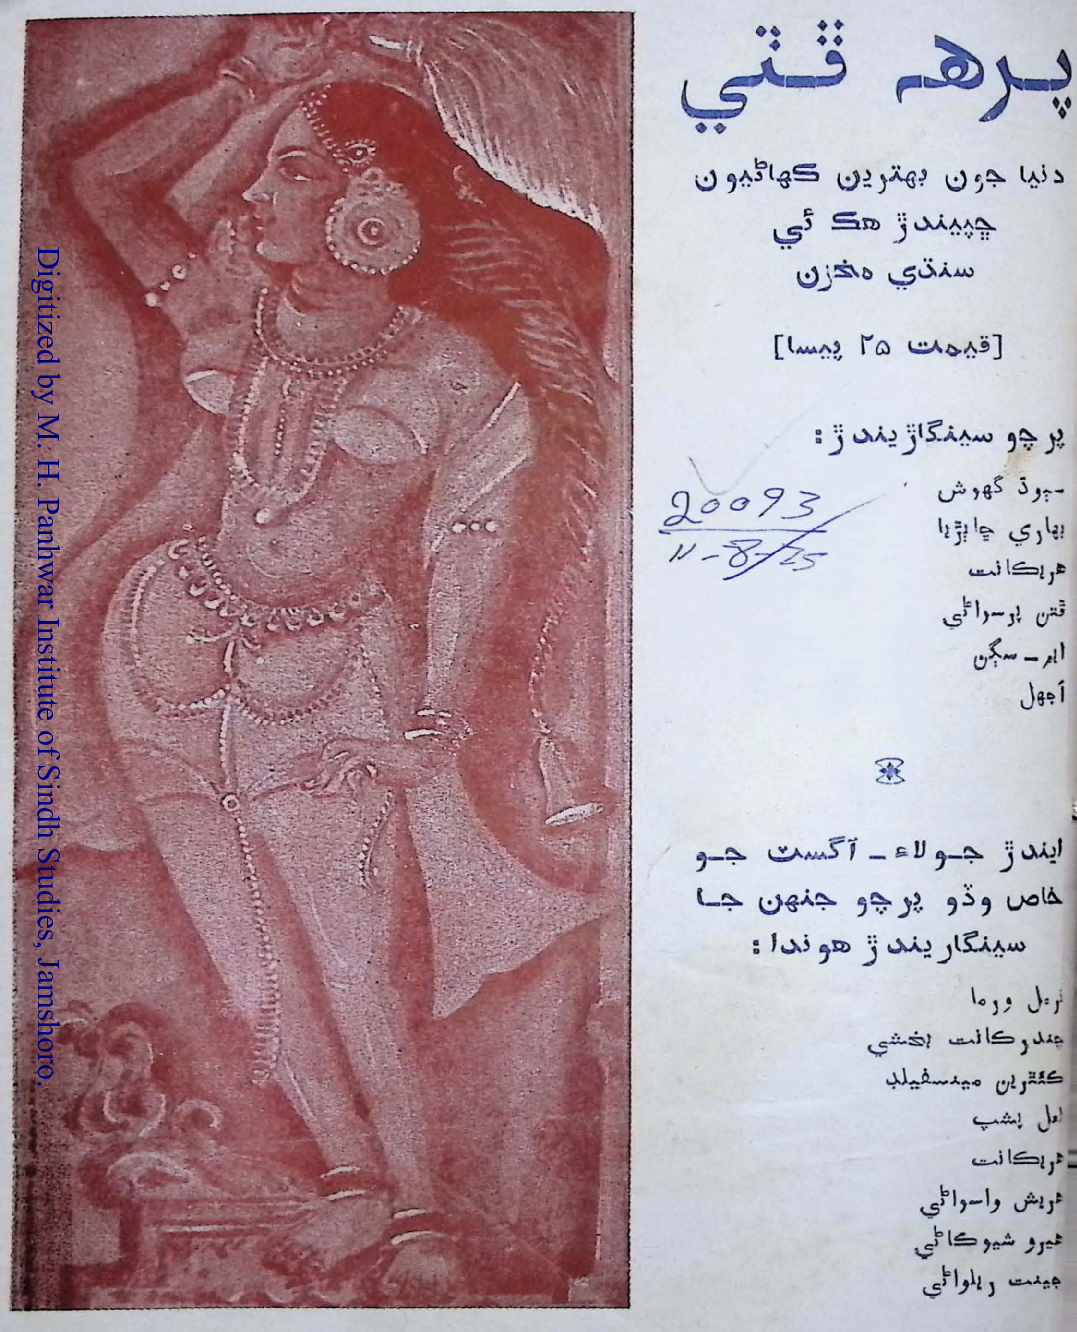 پرهہ ڦٽي
دنيا جون بهترين ڪهاڻيون
ڇپيندڙ هڪ ئي
سنڌي مخزن
[قيمت ۲۵ پيسا]
پرچو سينگاڙيندڙ :
گهوش
بهاري ڇاٻڙيا
هريڪانت
آڃهل
ايندڙ جولاءِ ـ آگسٽ جو
خاص وڏو پرچو جنهن جا
سينگاريندڙ هوندا :
نرمل ورما
چندرڪانت بخشي
ڪئٿرين مينسفيلڊ
لعل پشپ
هريڪانت
هريش واسواڻي
هيرو شيوڪاڻي
جينت ريلواڻي
20093
11-8-75
Digitized by M. H. Panhwar Institute of Sindh Studies, Jamshoro.